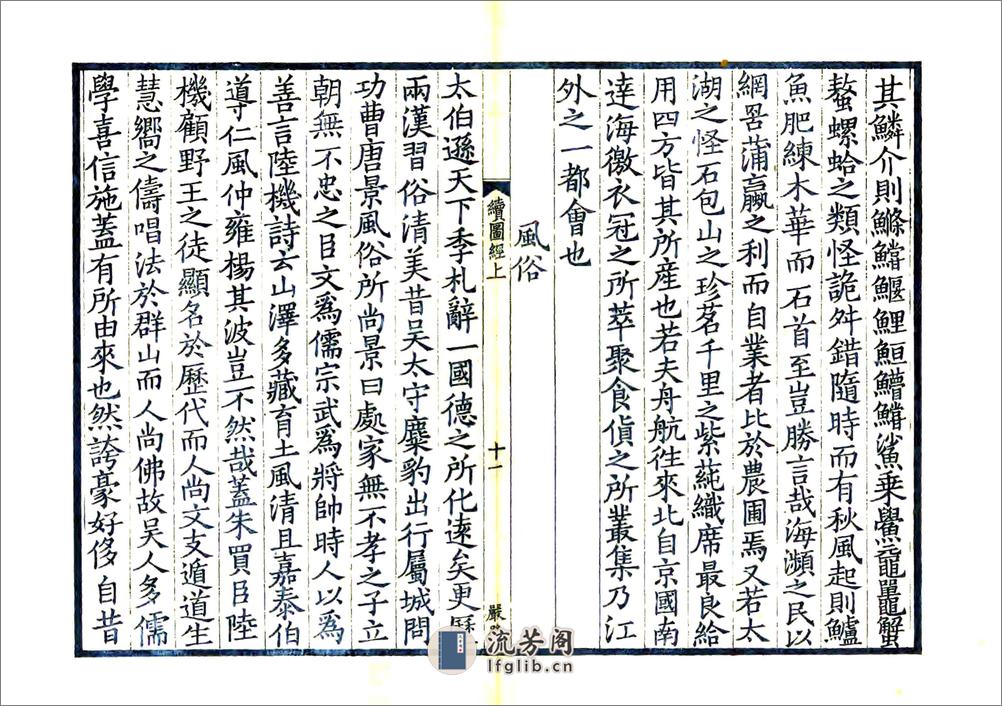 其鱗介則鰷鱨鰋鯉鯊乗鱟黿鼉蟹
螯螺蛤之類怪詭舛錯隨時而有秋風起則鱸
魚肥練木華而石首至豈勝言哉海瀕之民以
網罟蒲蠃之利而自業者比於農圃焉又若太
湖之怪石包山之珍茗千里之紫蓴織席最良給
用四方皆其所産也若夫舟航徃來北自京國南
達海徼衣冠之所萃聚食貨之所叢集乃江
外之一都會也
風俗
續圖經上
十一
嚴
太伯遜天下季札辭一國德之所化逺矣更歷
兩漢習俗清美昔吴太守麋豹出行屬城問
功曹唐景風俗所尚景曰處家無不孝之子立
朝無不忠之臣文爲儒宗武爲將帥時人以爲
善言陸機詩云山澤多藏育土風清且嘉泰伯
導仁風仲雍楊其波豈不然哉蓋朱買臣陸
機顧野王之徒顯名於歷代而人尚文支遁道生
慧嚮之儔唱法於群山而人尚佛故吴人多儒
學喜信施蓋有所由來也然誇豪好侈自昔
流芳阁
lfglib.cn